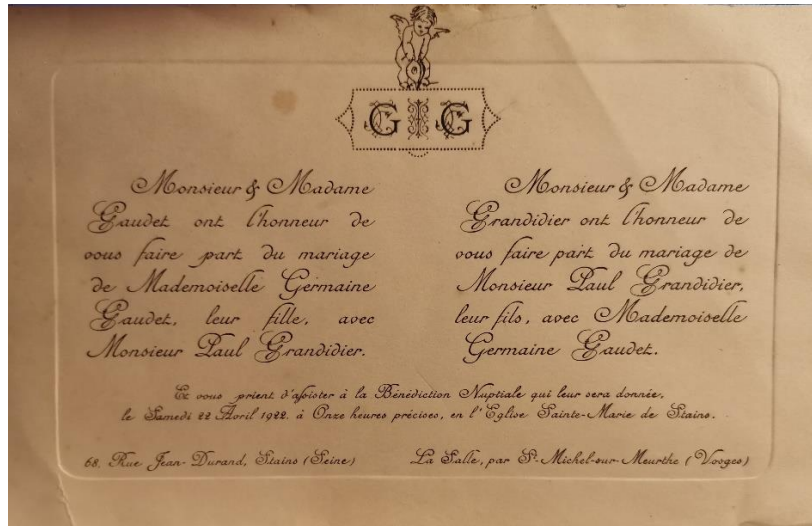 G G
Monsieur & Madame
Gaudet ont l'honneur de
vous faire part du mariage
de Mademoiselle Germaine
Gaudet, leur fille, avec
Monsieur Paul Grandidier.
Monsieur & Madame
Grandidier ont l'honneur de
vous faire part du mariage de
Monsieur Paul Grandidier,
leur fils, avec Mademoiselle
Germaine Gaudet.
Et vous prient d'assister à la Bénédiction Nuptiale qui leur sera donnée,
le Samedi 22 Avril 1922, à Onze heures précises, en l'Eglise Sainte-Marie de Stains.
68, Rue Jean-Durand, Stains (Seine)
La Salle, par St-Michel-sur-Meurthe (Vosges)